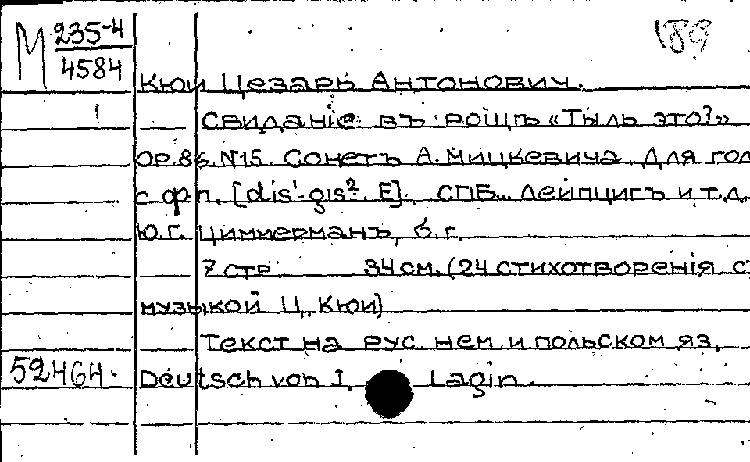 М 235-4
4584
189
Кюи Цезарь Антонович.
Свиданіе въ рощѣ «Ты ль это?»
ор.86. N15. Сонетъ А. Мицкевича. Для гол
с фп. [dis¹-gis² E]. СПБ., Лейпцигъ и т.д.
Ю.Г. Циммерманъ, б.г.
7 стр. 34 см. (24 стихотворенія с
музыкой Ц. Кюи)
Текст на рус. нем и польском яз.
52464.
Deutsch von I. Lagin.